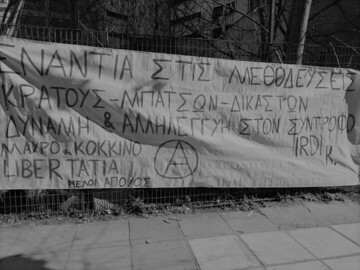 ΕΝΑΝΤΙΑ ΣΤΙΣ ΜΕΘΟΔΕΥΣΕΙΣ
ΚΡΑΤΟΥΣ-ΜΠΑΤΣΩΝ-ΔΙΚΑΣΤΩΝ
ΔΥΝΑΜΗ & ΑΛΛΗΛΕΓΓΥΗ ΣΤΟΝ ΣΥΝΤΡΟΦΟ
IRDI K.
ΜΑΥΡΟ & ΚΟΚΚΙΝΟ
LIBERTATIA